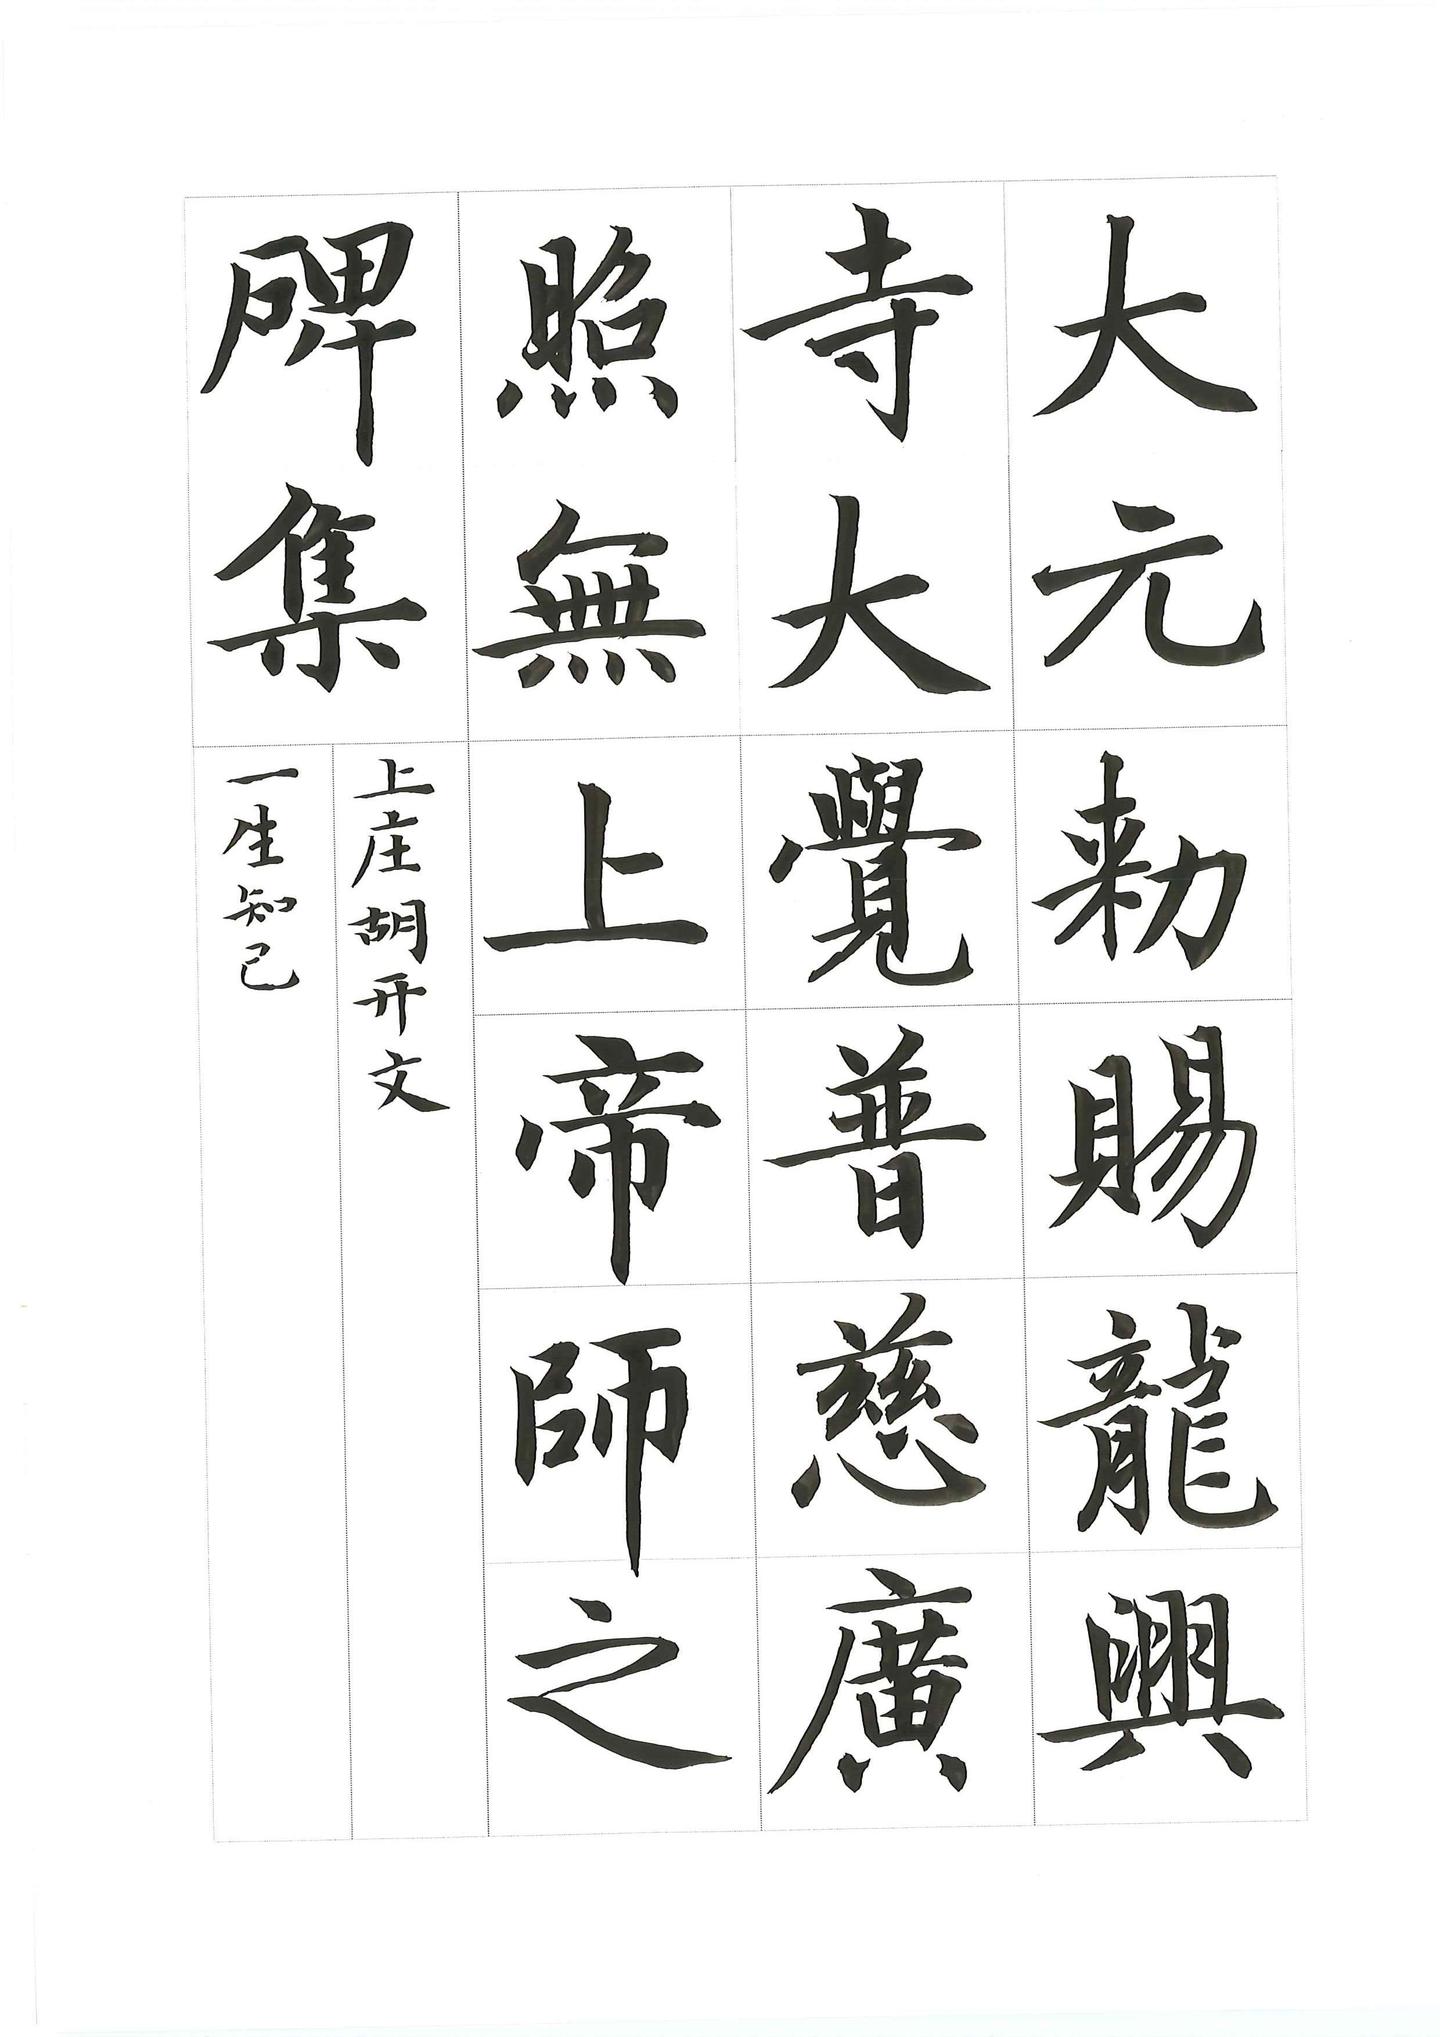 大元勑賜龍興
寺大覺普慈廣
照無上帝師之
碑集
上庄胡开文
一生知己